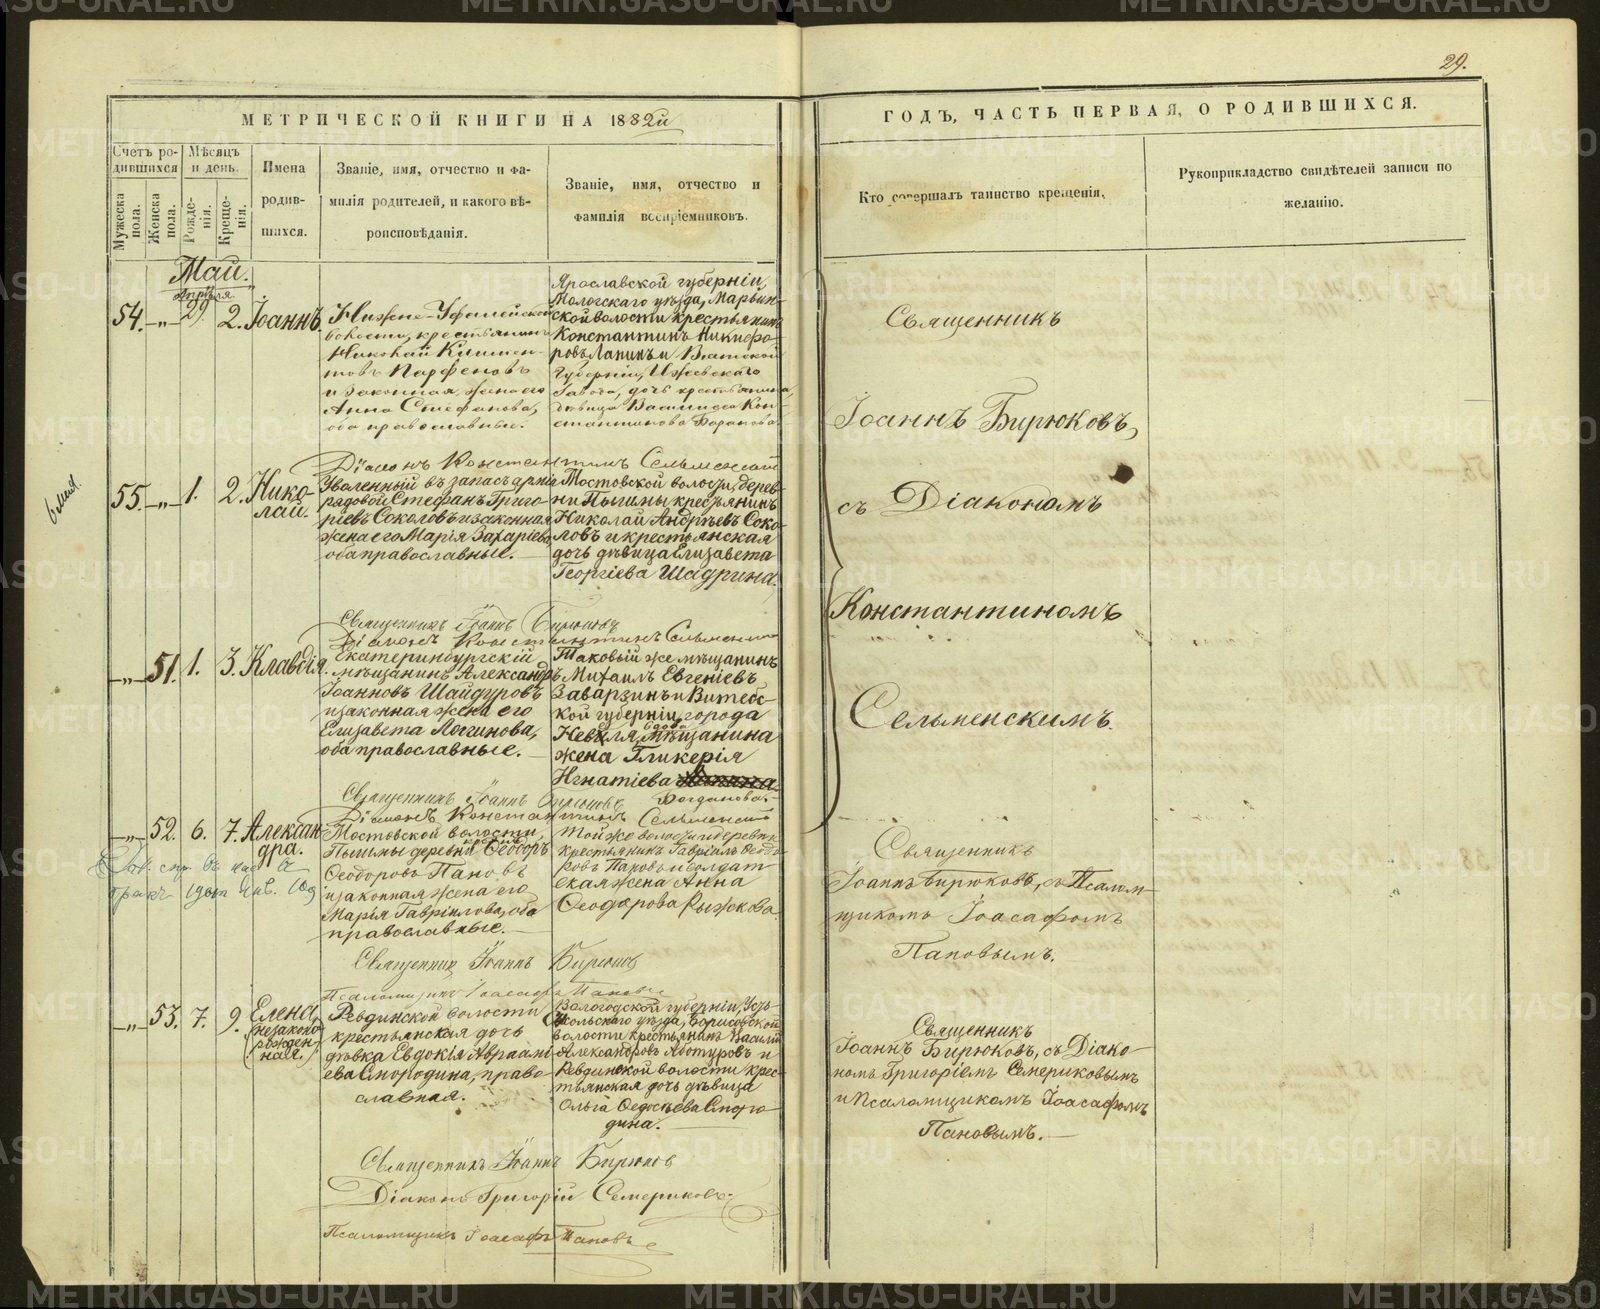 29.
МЕТРИЧЕСКОЙ КНИГИ НА 1882й
ГОДЪ, ЧАСТЬ ПЕРВАЯ, О РОДИВШИХСЯ.
Счетъ родившихся
Мужеска пола.
Женска пола.
Мѣсяцъ и день.
Рожденія.
Крещенія.
Имена
родив-
шихся.
Званіе, имя, отчество и фа-
милія родителей, и какого вѣ-
роисповѣданія.
Званіе, имя, отчество и
фамилія воспріемниковъ.
Кто совершалъ таинство крещенія.
Рукоприкладство свидѣтелей записи по
желанію.
Май.
Апрѣля
54. -„- 29. 2. Іоаннъ.
Нижне-Уфалейской
волости, крестьянинъ
Николай Климен-
товъ Парфеновъ
и законная жена его
Анна Стефанова,
оба православные.
Ярославской губерніи,
Мологскаго уѣзда, Марьин-
ской волости крестьянинъ
Константинъ Никифо-
ровъ Лапинъ и Вятской
губерніи, Ижевскаго
завода, дочь крестьянина,
дѣвица Василиса Кон-
стантинова Баранова
Священникъ
Іоаннъ Бирюковъ,
съ Діакономъ
Константиномъ
Сельменскимъ.
Діаконъ Константинъ Сельменскій
55. -„- 1. 2. Нико-
лай.
Уволенный въ запасъ арміи
рядовой Стефанъ Григо-
ріевъ Соколовъ и законная
жена его Марія Захаріева,
оба православные.
Мостовской волости, дерев-
ни Пышмы, крестьянинъ
Николай Андреевъ Соко-
ловъ и крестьянская
дочь дѣвица Елизавета
Георгіева Шадрина.
Священникъ Іоаннъ Бирюковъ
Діаконъ Константинъ Сельменскій
-„- 51. 1. 3. Клавдія.
Екатеринбургскій
мѣщанинъ Александръ
Іоанновъ Шайдуровъ
и законная жена его
Елизавета Логинова,
оба православные.
Таковый же мѣщанинъ
Михаилъ Евгеніевъ
Заварзинъ и Витебс-
кой губерніи, города
Невеля, мѣщанина
жена Гликерія
Игнатіева
Богданова.
Священникъ Іоаннъ Бирюковъ
Діаконъ Константинъ Сельменскій
-„- 52. 6. 7. Алексан-
дра.
Мостовской волости,
Пышмы деревни Ѳеодоръ
Ѳеодоровъ Пановъ
и законная жена его
Марія Гавріилова, оба
православные.
Той же волости и деревни
крестьянинъ Гавріилъ Ѳеодо-
ровъ Пановъ и солдат-
ская жена Анна
Ѳеодорова Рыжкова.
Священникъ
Іоаннъ Бирюковъ, съ Псалом-
щикомъ Іоасафомъ
Пановымъ.
Священникъ Іоаннъ Бирюковъ
Псаломщикъ Іоасафъ Пановъ
-„- 53. 7. 9. Елена,
(незаконо-
рожден-
ная)
Ревдинской волости
крестьянская дочь
дѣвка Евдокія Авраамі-
ева Смородина, право-
славная.
Вологодской губерніи, Усть-
сысольскаго уѣзда, Борисовской
волости крестьянинъ Василій
Александровъ Аботуровъ и
Ревдинской волости крес-
тьянская дочь дѣвица
Ольга Ѳедосѣева Сморо-
дина.
Священникъ
Іоаннъ Бирюковъ, съ Діако-
номъ Григоріемъ Семериковымъ
и Псаломщикомъ Іоасафомъ
Пановымъ.
Священникъ Іоаннъ Бирюковъ
Діаконъ Григорій Семериковъ.
Псаломщикъ Іоасафъ Пановъ
METRIKI.GASO-URAL.RU